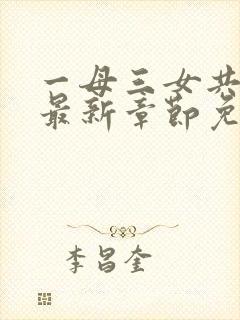 一母三女共
最新章节免
李昌奎